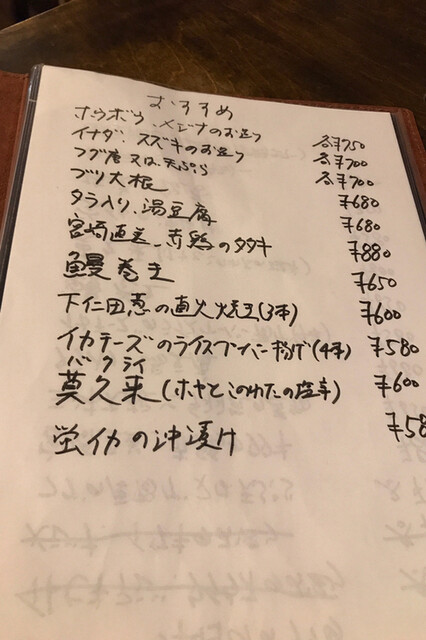 おすすめ
ホウボウ、メジナのお造り 各¥750
イナダ、スズキのお造り 各¥700
フグ唐又は天ぷら 各¥700
ブリ大根 ¥680
タラ入り湯豆腐 ¥680
宮崎直送、赤鶏のタタキ ¥880
鰻巻き ¥650
下仁田葱の直火焼(3本) ¥600
イカチーズのライスペーパー揚げ(4本) ¥580
バクライ
莫久来(ホヤとこのわたの塩辛) ¥600
蛍イカの沖漬け ¥58